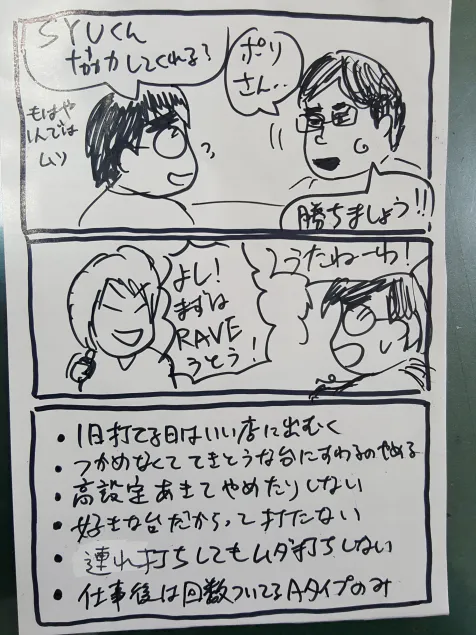 SYUくん
協力してくれる?
ポリ
さん…
もはや
1人では
ムリ
勝ちましょう!!
よし!
まずは
RAVE
うとう!
うたねーわ!
・1日打てる日はいい店に出むく
・つかめなくててきとうな台にすわるのやめる
・高設定あきてやめたりしない
・好きな台だからって打たない
・連れ打ちしてもムダ打ちしない
・仕事後は回数ついてるAタイプのみ